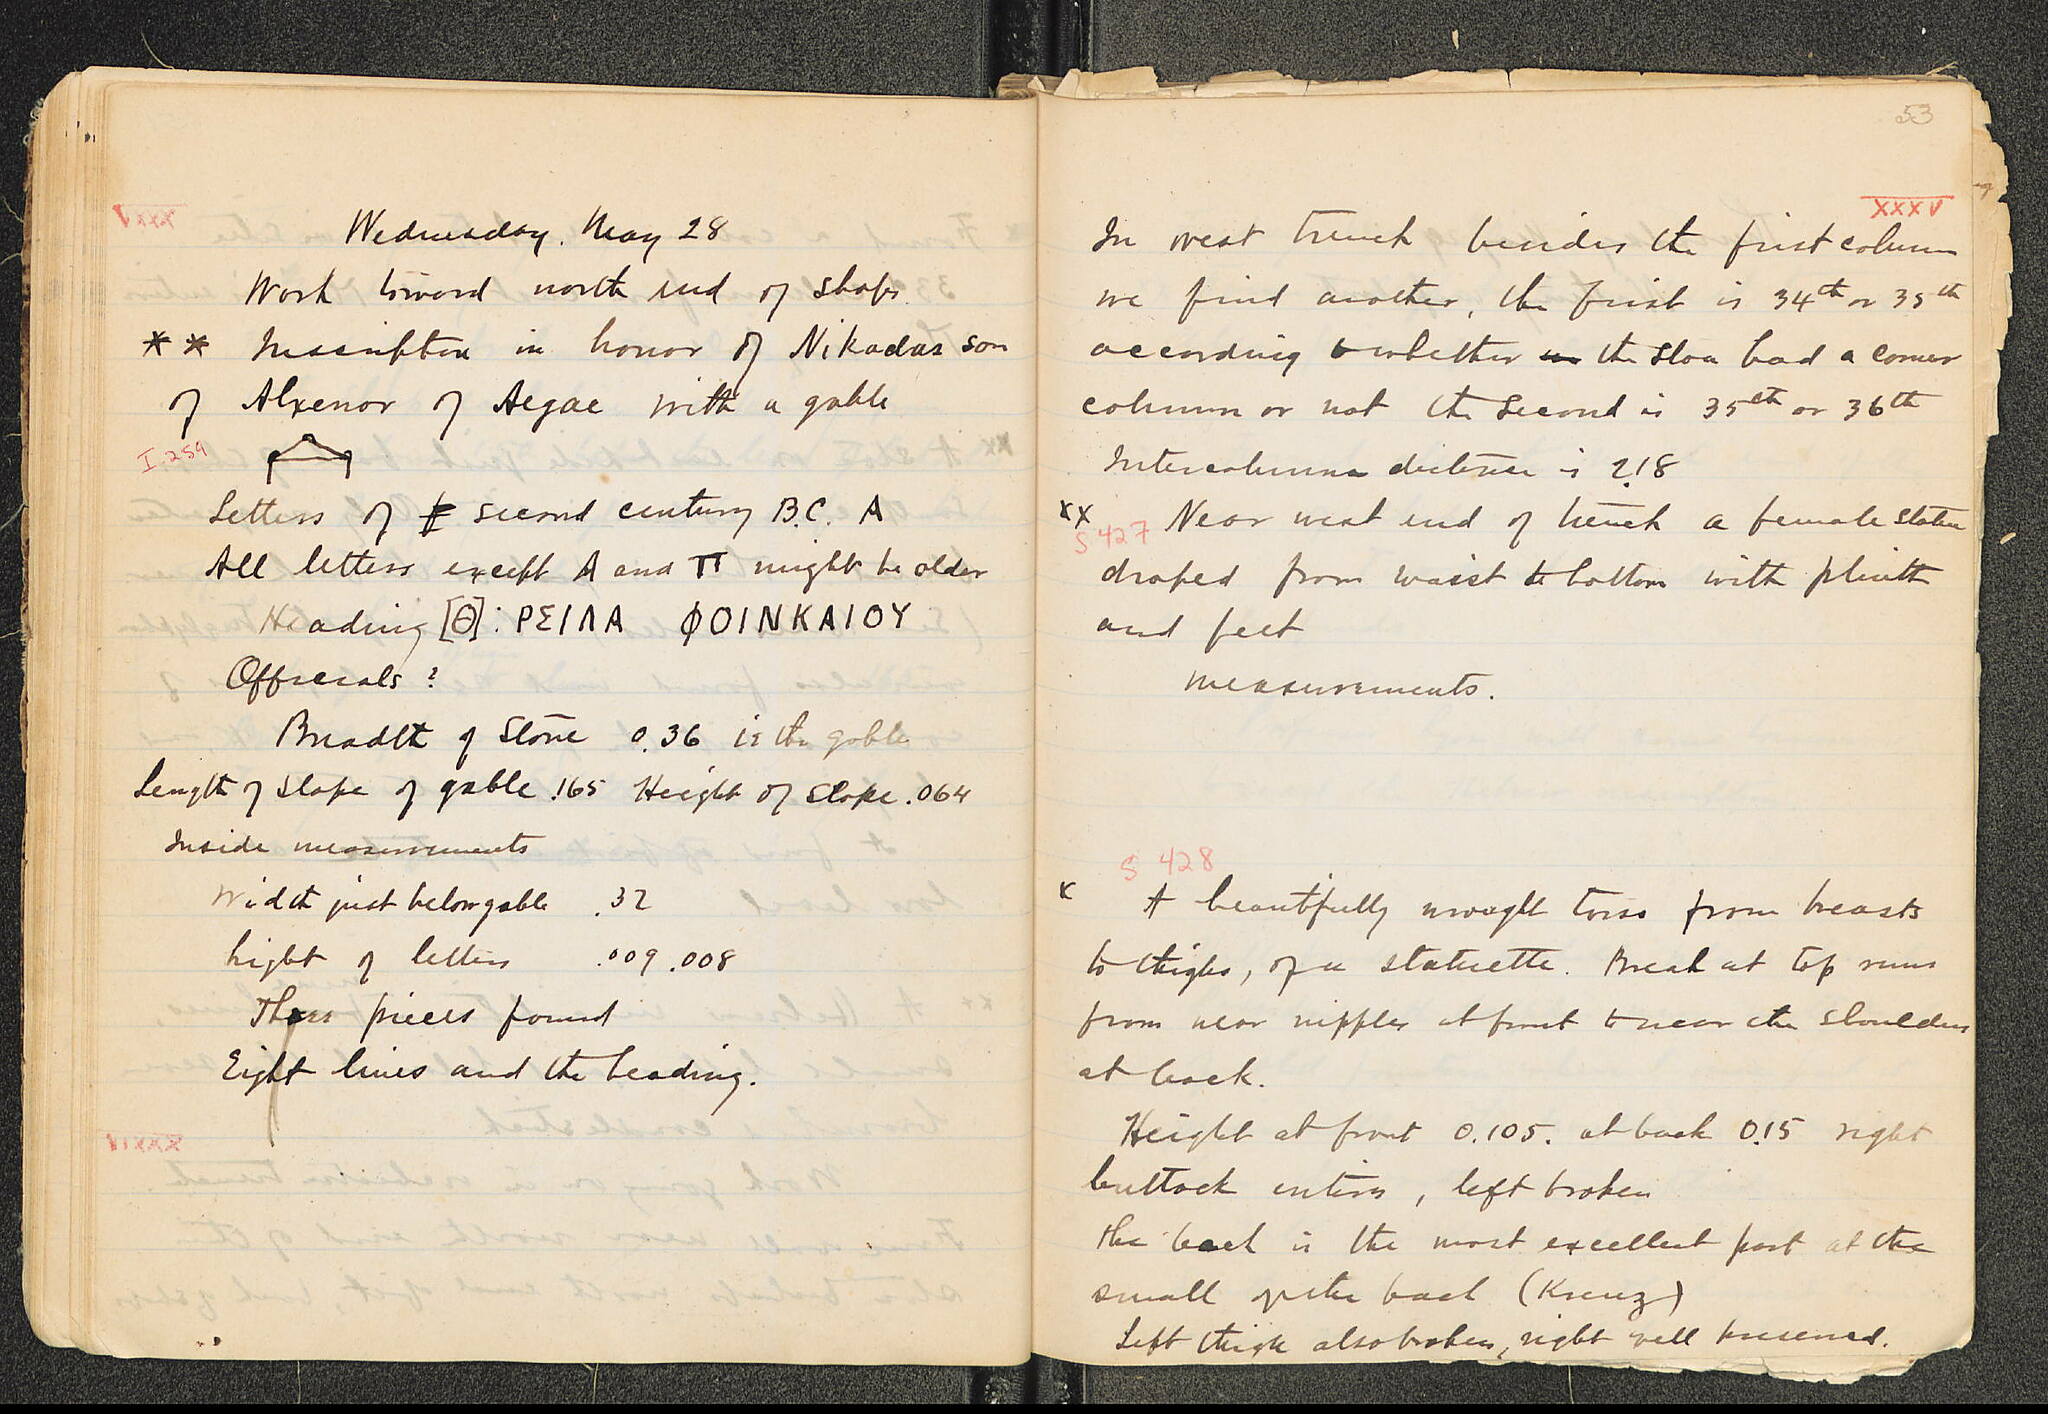 Wednesday. May 28
Work toward north end of shops.
** Inscription in honor of Nikadas son
of Alxenor of Aegae with a gable
I.259
Letters of second century B.C. A
All letters except A and Π might be older
Heading [Θ]: ΡΣΙΛΑ ΦΟΙΝΚΑΙΟΥ
Officials?
Breadth of Stone 0.36 is the gable
Length of slope of gable .165 Height of slope .064
Inside measurements
Width just below gable .32
hight of letters .009 .008
Three pieces found
Eight lines and the heading.
53
XXXV
In west trench besides the first column
we find another, the first is 34th or 35th
according to whether the stoa had a corner
column or not the second is 35th or 36th
Intercolumn distance is 2.18
xx Near west end of trench a female statue
S 427
draped from waist to bottom with plinth
and feet
measurements.
S 428
x A beautifully wrought torso from breasts
to thighs, of a statuette. Break at top runs
from near nipples at front to near the shoulders
at back.
Height at front 0.105. at back 0.15 right
buttock entire, left broken
the back is the most excellent part at the
small of the back (Kreuz)
Left thigh also broken, right well preserved.